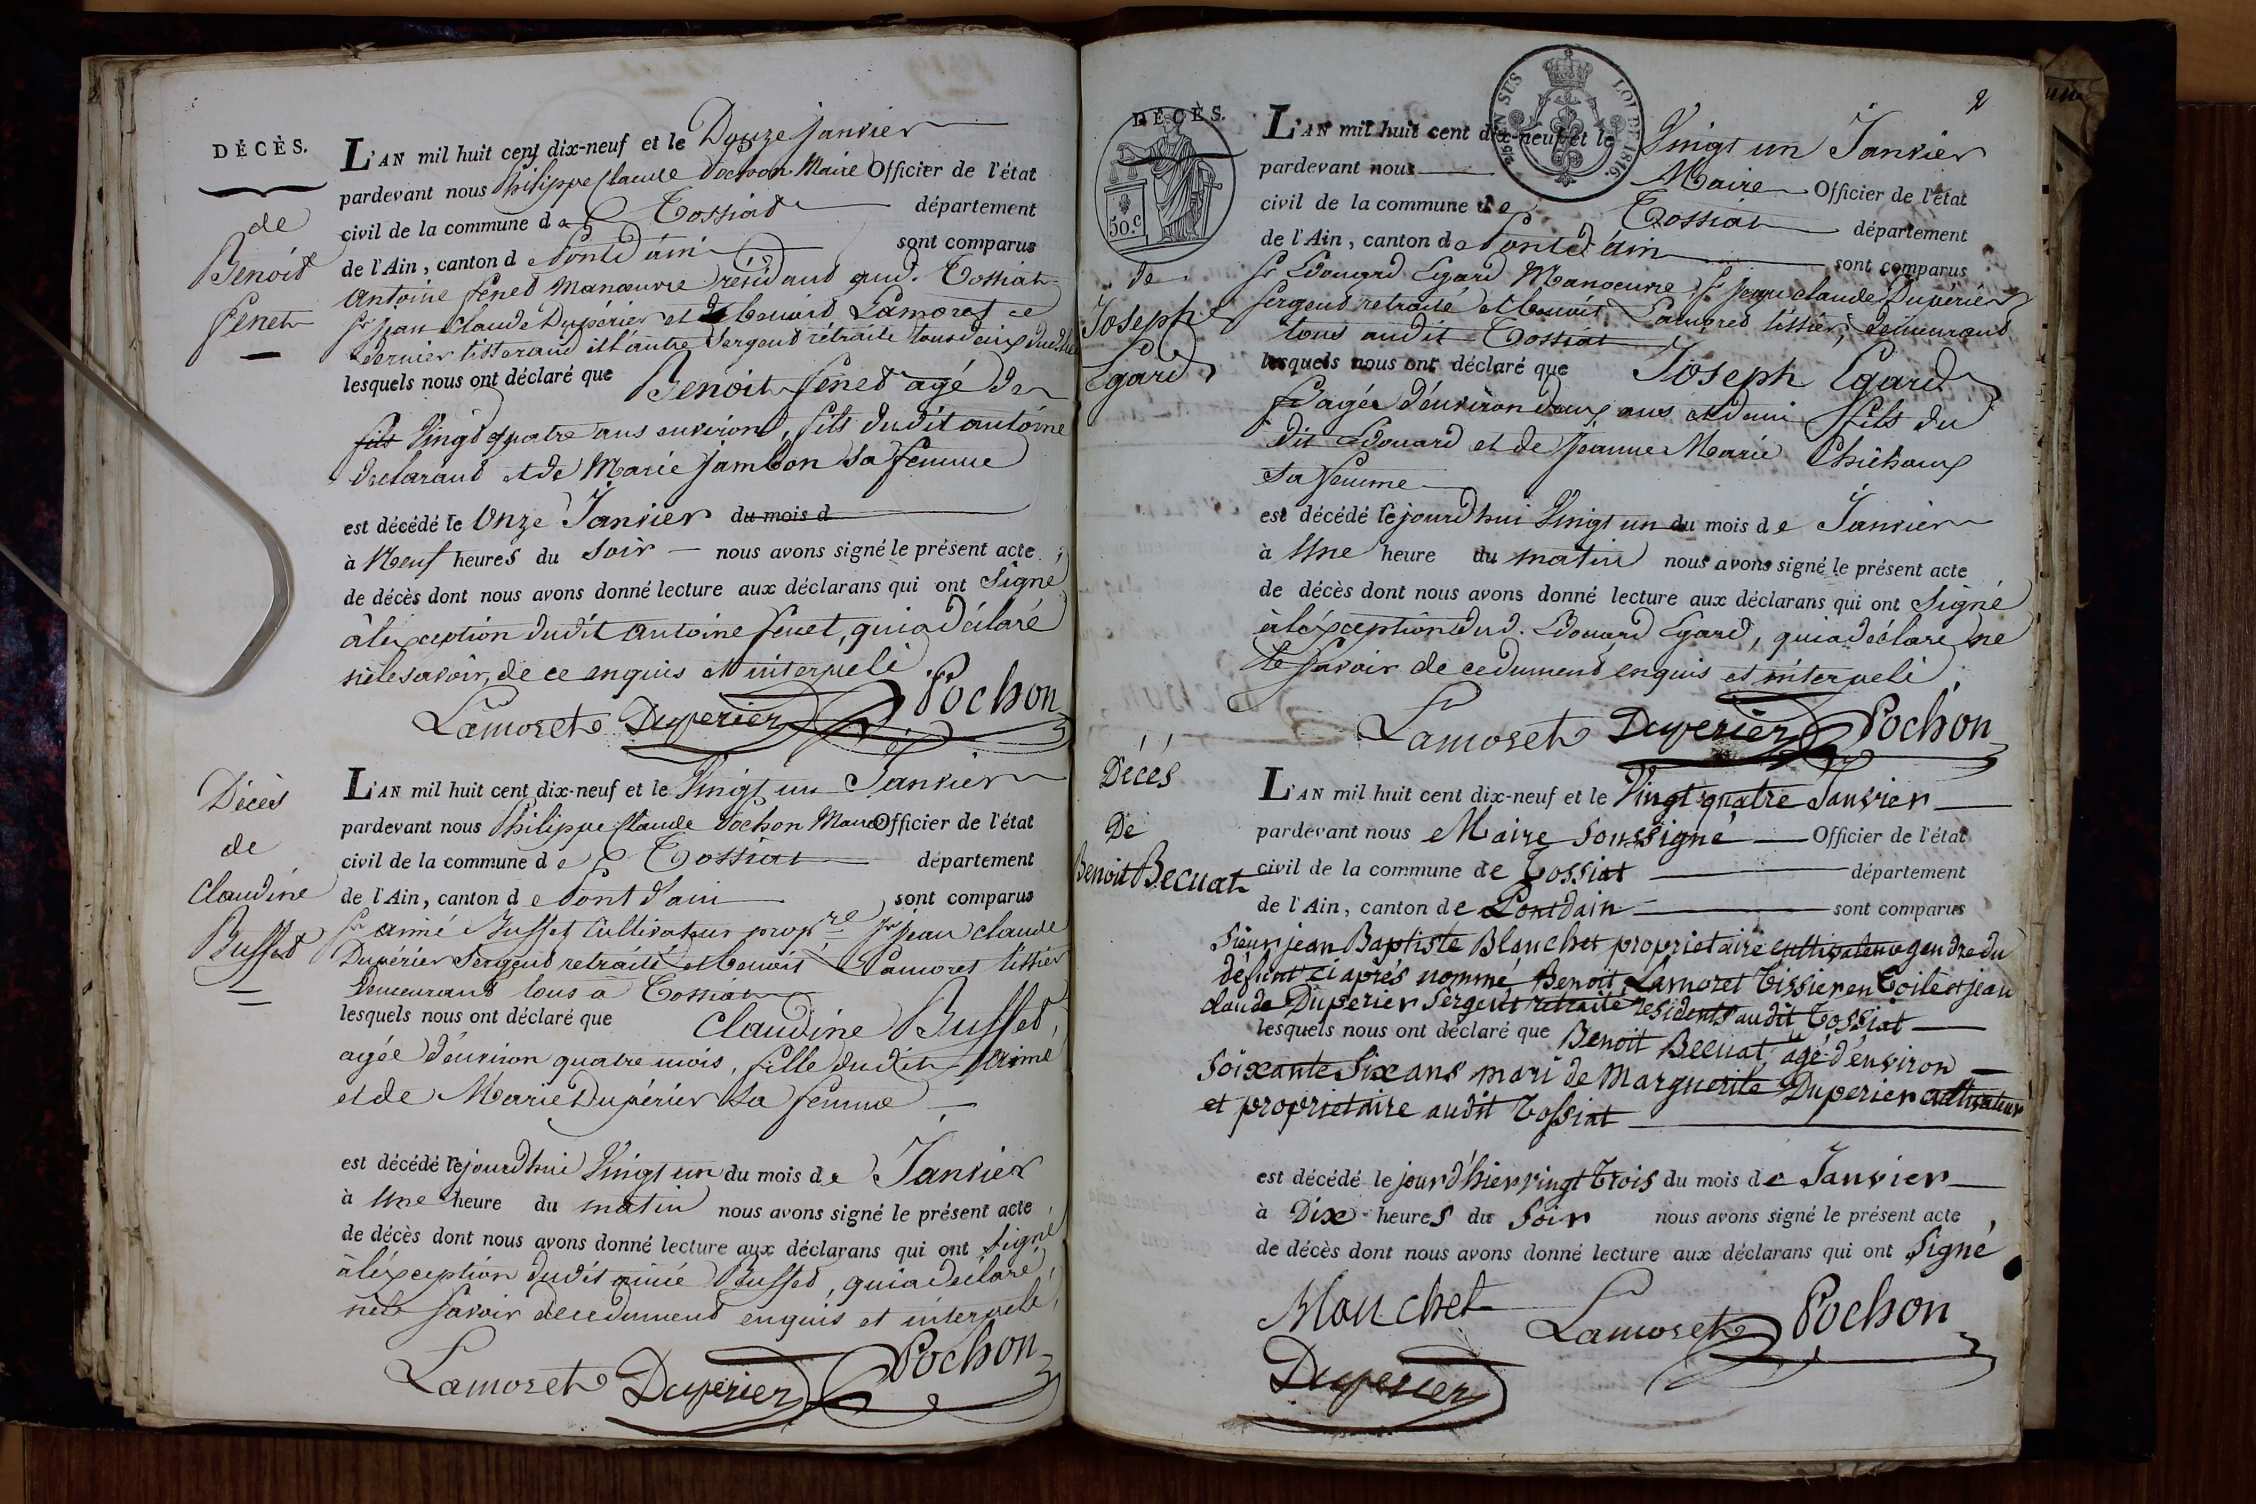 DÉCÈS.
de
Benoit
fenet
L'AN mil huit cent dix-neuf et le Douze Janvier
pardevant nous Philippe Claude Pochon Maire Officier de l'état
civil de la commune de Tossiat département
de l'Ain, canton de Pont d'ain sont comparus
Antoine fenet Manœuvre résidant aud. Tossiat
Sr jean Claude Dupérier et Benoit Lamoret ce
dernier tisserand et l'autre Sergent rétraité tous deux dud.
lesquels nous ont déclaré que Benoit fenet agé de
fils Vingt quatre ans environ, fils dudit antoine
declarant et de Marie Jambon sa femme
est décédé le Onze Janvier du mois d
à Neuf heures du Soir nous avons signé le présent acte
de décès dont nous avons donné lecture aux déclarans qui ont Signé
à léxception dudit antoine fenet, qui a déclaré
ne le savoir, de ce enquis et interpelé
Lamoret Duperier Pochon
Décès
de
Claudine
Buffet
L'AN mil huit cent dix-neuf et le Vingt un Janvier
pardevant nous Philippe Claude Pochon Maire Officier de l'état
civil de la commune de Tossiat département
de l'Ain, canton de Pont d'ain sont comparus
Sr aimé Buffet Cultivateur propre Sr jean claude
Dupérier Sergent retraité et benoit Lamoret tissier
demeurant tous a Tossiat
lesquels nous ont déclaré que Claudine Buffet,
agée d'environ quatre mois, fille dudit Aimé
et de Marie Dupérier Sa femme
est décédé le jourdhui Vingt un du mois de Janvier
à Une heure du matin nous avons signé le présent acte
de décès dont nous avons donné lecture aux déclarans qui ont Signé
à léxception dudit aimé Buffet, qui a déclaré,
ne le Savoir de ce dument enquis et interpelé,
Lamoret Duperier Pochon
2
DÉCÈS.
50.c
SUS LOI DE 1816.
de
Joseph
Egard
L'AN mil huit cent dix-neuf et le Vingt un Janvier
pardevant nous Maire Officier de l'état
civil de la commune de Tossiat département
de l'Ain, canton de Pont d'ain sont comparus
Sr Edouard Egard Manoeuvre Sr Jean claude Dupérier
Sergent retraité et benoit Lamoret tissier, demeurant
tous audit Tossiat
lesquels nous ont déclaré que Joseph Egard
agé d'environ deux ans et demi fils du
dit Edouard et de Jeanne Marie Chichoux
Sa femme
est décédé le jourdhui Vingt un du mois de Janvier
à Une heure du matin nous avons signé le présent acte
de décès dont nous avons donné lecture aux déclarans qui ont Signé
à léxception dud. Edouard Egard, qui a déclaré ne
le Savoir de ce dument enquis et interpelé
Lamoret Duperier Pochon
Décés
De
Benoit Becuat
L'AN mil huit cent dix-neuf et le Vingt quatre Janvier
pardevant nous Maire Soussigné Officier de l'état
civil de la commune de Tossiat département
de l'Ain, canton de Pontdain sont comparus
Sieur jean Baptiste Blanchet proprietaire cultivateur gendre du
défunt ci aprés nommé Benoit Lamoret Tissier en Toile et jean
claude Duperier Sergent retraité residents audit Tossiat
lesquels nous ont déclaré que Benoit Becuat, âgé d'environ
Soixante Six ans mari de Marguerite Duperier cultivateur
et proprietaire audit Tossiat
est décédé le jour d'hier vingt Trois du mois de Janvier
à Dix heures du Soir nous avons signé le présent acte,
de décès dont nous avons donné lecture aux déclarans qui ont Signé
Blanchet Lamoret Pochon
Duperier